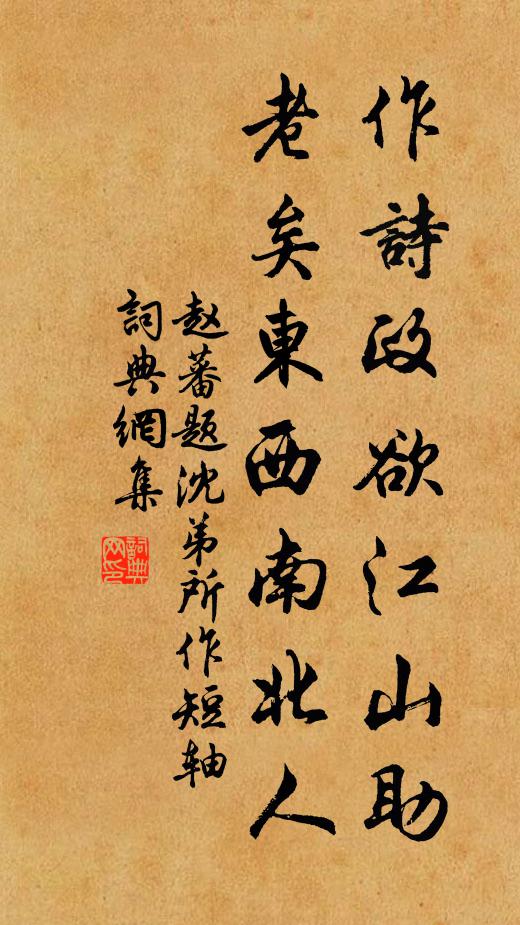 作詩政欲江山助
老矣東西南北人
赵蕃题沈弟所作短轴
詞典網集
詞典网印